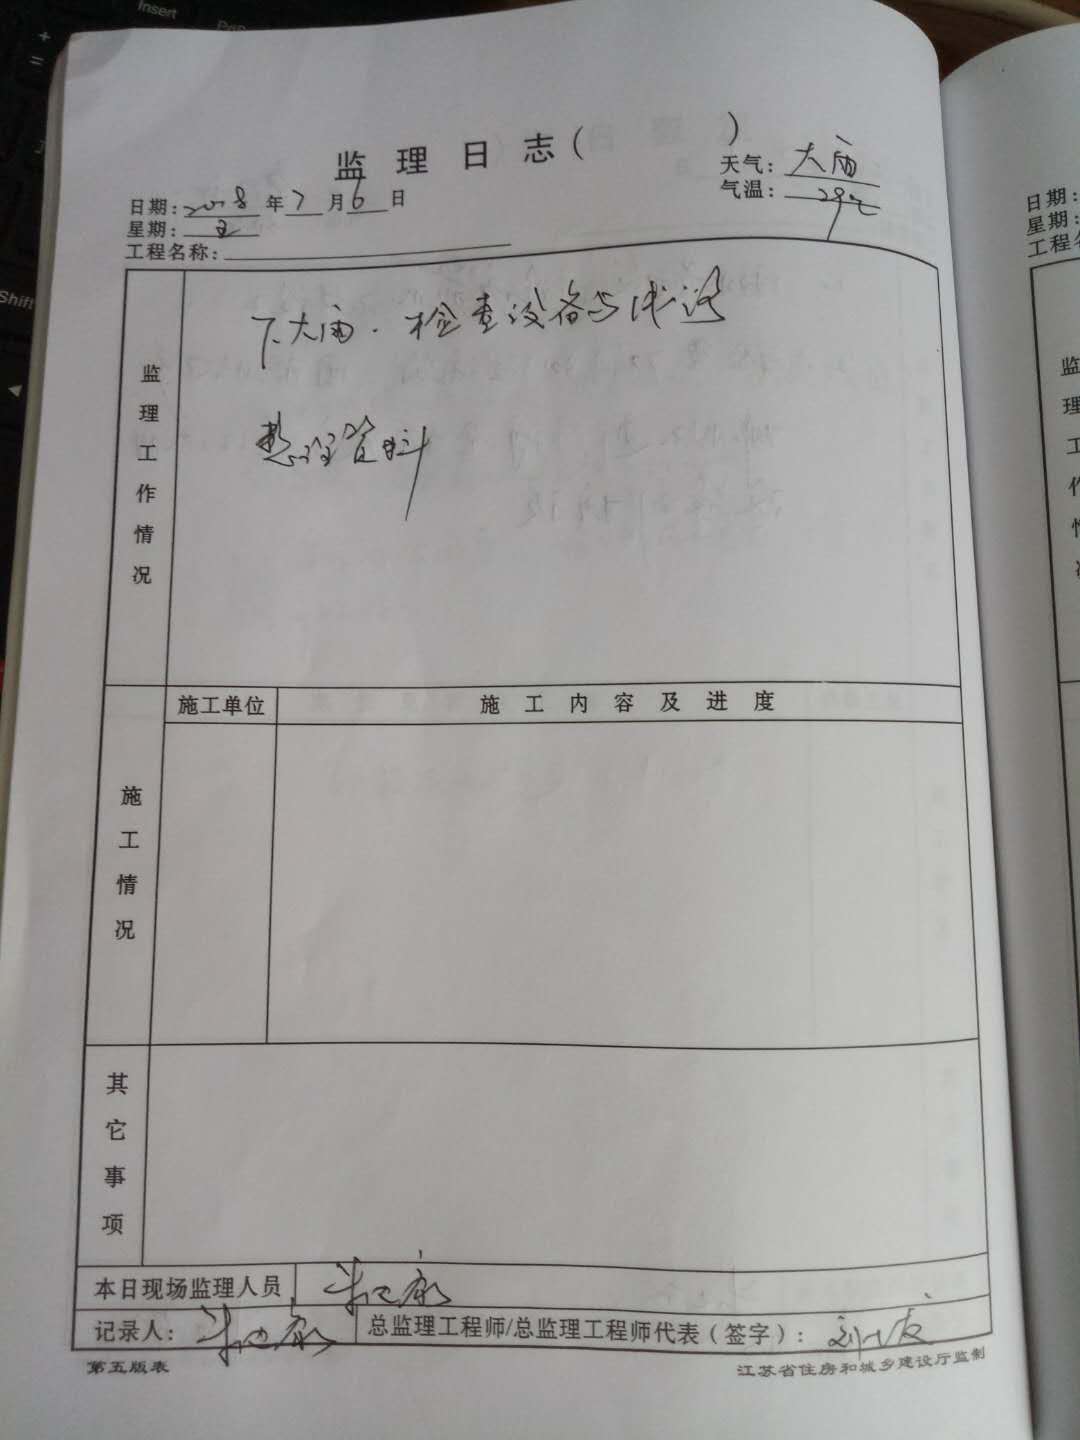 Insert
Shift
监理日志( )
天气: 大雨
气温: 29℃
日期: 2018年7月6日
星期: 五
工程名称:
监理工作情况
下大雨.检查设备与
整理资料
施工情况
施工单位
施工内容及进度
其它事项
本日现场监理人员
记录人:
总监理工程师/总监理工程师代表(签字):
第五版表
江苏省住房和城乡建设厅监制
日期:
星期:
工程名